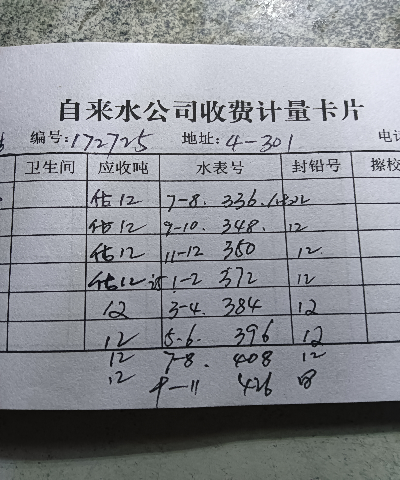 自来水公司收费计量卡片
编号:172725 地址:4-301 电话
卫生间 应收吨 水表号 封铅号 擦校
估12 7-8. 336.
估12 9-10. 348. 12
估12 11-12 360 12
估12 1-2 372 12
12 3-4. 384 12
12 5-6. 396 12
12 7-8. 408 12
12 9-11 426